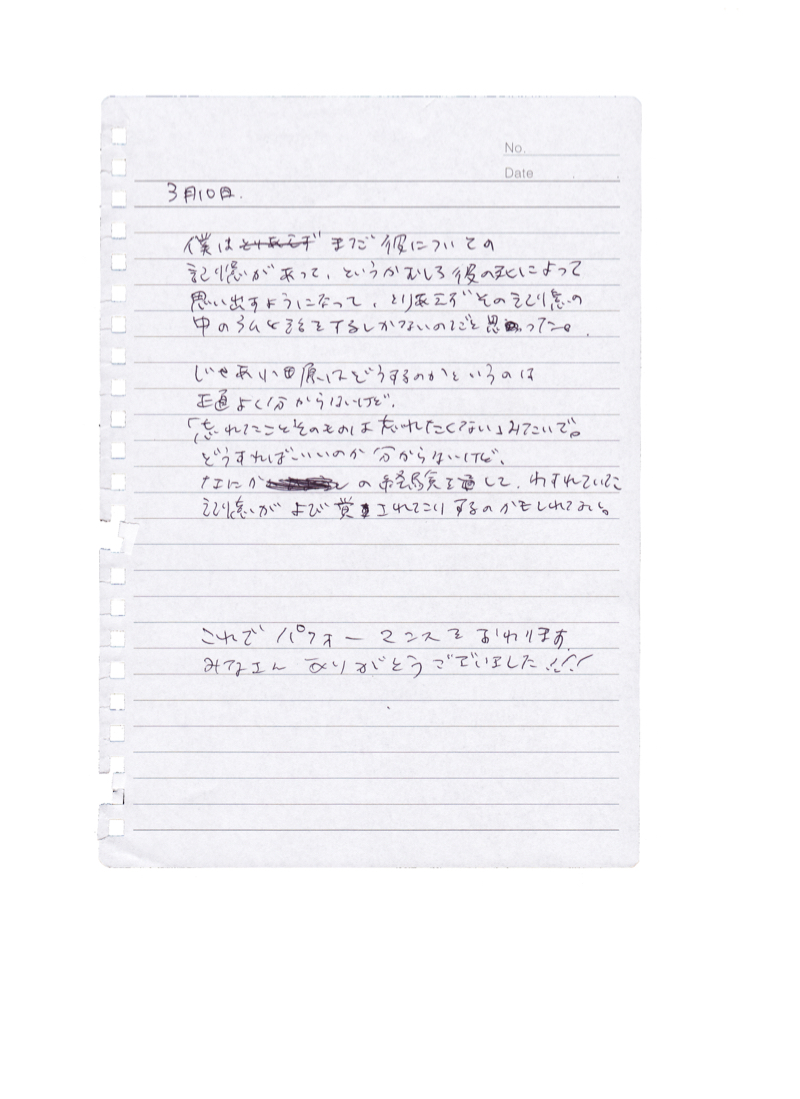 No.
Date
3月10日.
僕は とりあえず まだ 彼についての
記憶があって、というかむしろ彼の死によって
思い出すようになって、とりあえずその記憶の
中の と話をするしかないのだと思った。
じゃあ小田原はどうするのかというのは
正直よく分からないけど、
「忘れたことそのものは忘れたくない」みたいで。
どうすればいいのか 分からないけど、
なにか の経験を通して、わすれていた
記憶がよび覚まされたりするのかもしれない。
これでパフォーマンスをおわります。
みなさん ありがとうございました!!!